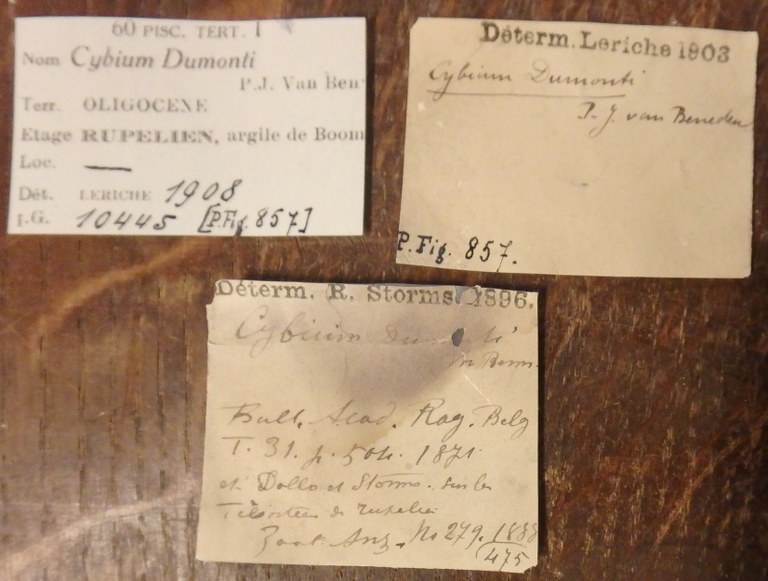 60 PISC. TERT. I
Nom Cybium Dumonti
P.J. Van Ben
Terr. OLIGOCENE
Etage RUPELIEN, argile de Boom
Loc. —
Dét. LERICHE 1908
I.G. 10445 [P.Fig. 857]
Déterm. Leriche 1903
Cybium Dumonti
P. J. van Beneden
P. Fig. 857.
Déterm. R. Storms 1896.
Cybium Dumonti
Bull. Acad. Roy. Belg
T. 31. p. 504. 1871.
et Dollo et Storms. sur les
Téléostéens du rupélien
Zool. Anz. No 279. 1888
475